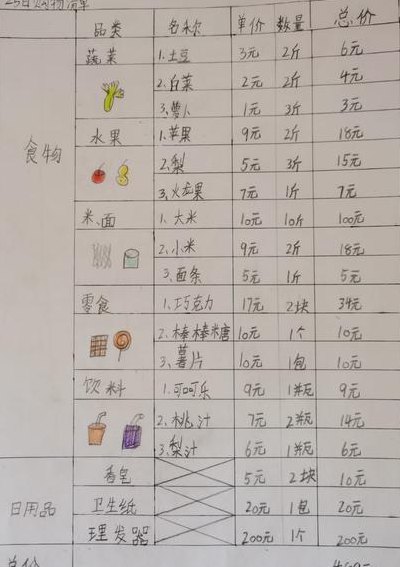 25日购物清单
品类 名称 单价 数量 总价
食物
蔬菜 1.土豆 3元 2斤 6元
2.白菜 2元 2斤 4元
3.萝卜 1元 3斤 3元
水果 1.苹果 9元 2斤 18元
2.梨 5元 3斤 15元
3.火龙果 7元 1斤 7元
米、面 1.大米 10元 10斤 100元
2.小米 9元 2斤 18元
3.面条 5元 1斤 5元
零食 1.巧克力 17元 2块 34元
2.棒棒糖 10元 1个 10元
3.薯片 10元 1包 10元
饮料 1.可口可乐 9元 1瓶 9元
2.桃汁 7元 2瓶 14元
3.梨汁 6元 1瓶 6元
日用品
香皂 5元 2块 10元
卫生纸 20元 1包 20元
理发器 200元 1个 200元
总价